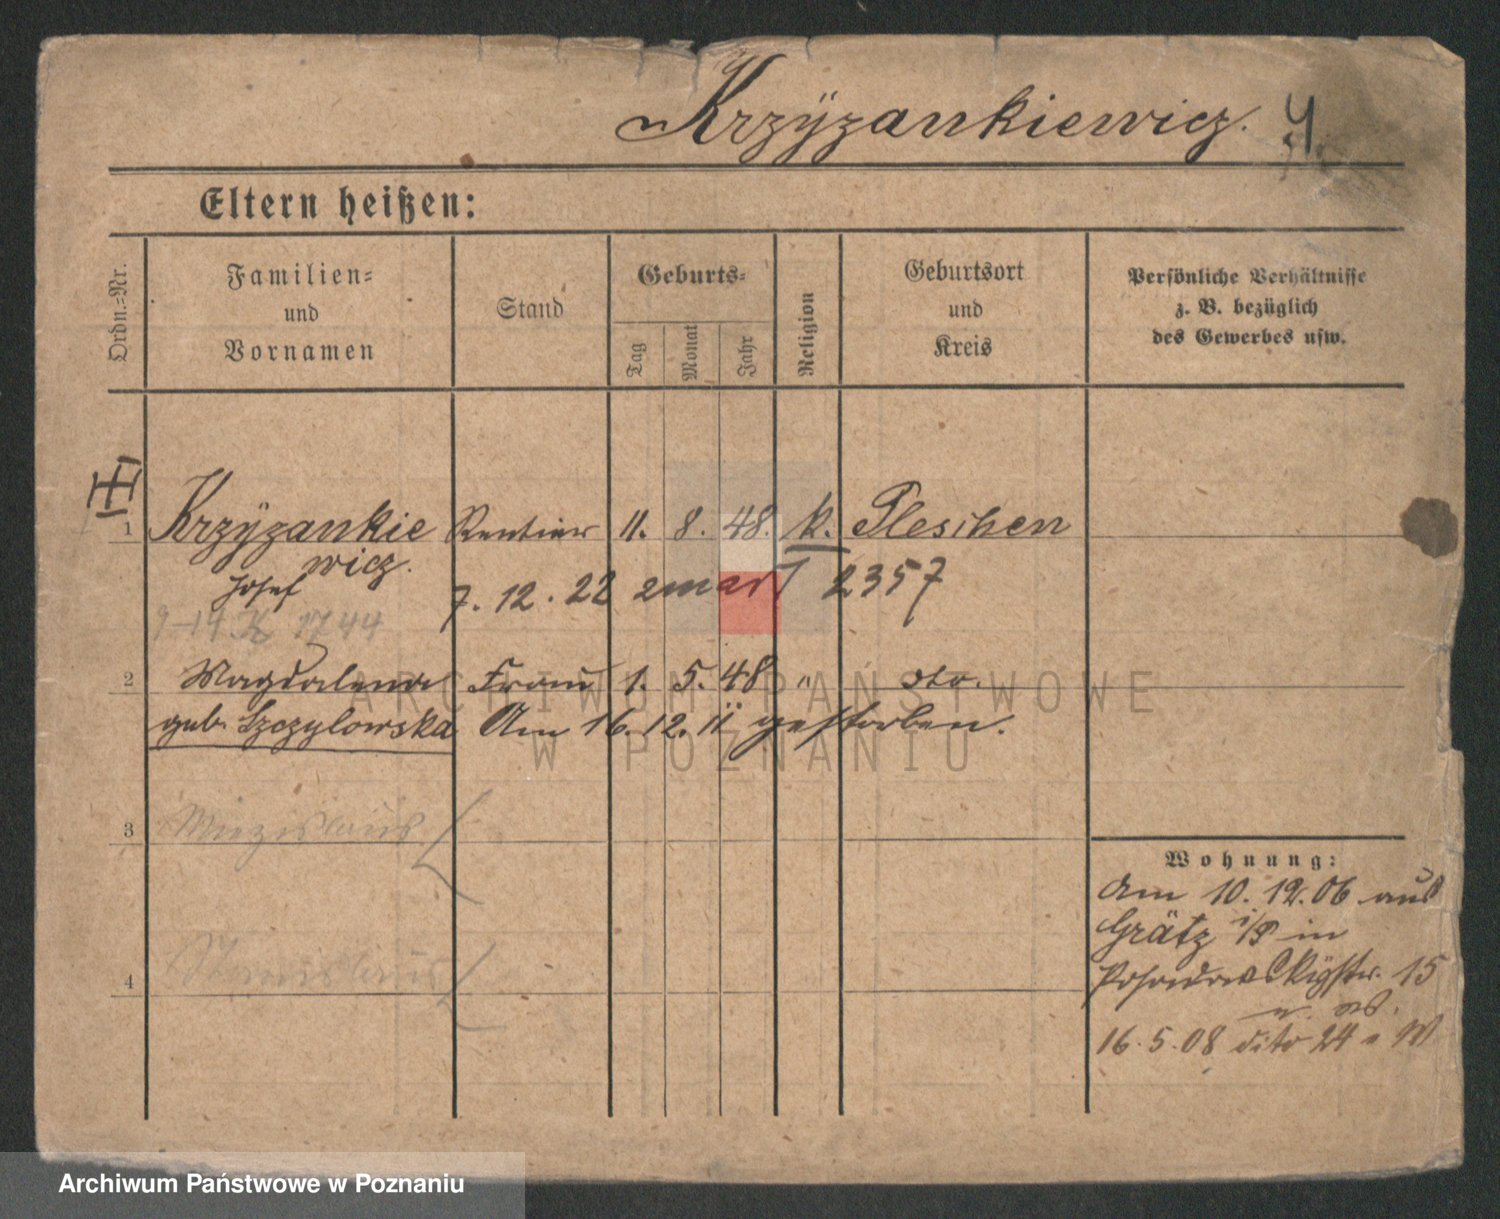 Krzÿzankiewicz. 4
Eltern heißen:
Ordn.-Nr.
Familien-
und
Vornamen
Stand
Geburts-
Tag
Monat
Jahr
Religion
Geburtsort
und
Kreis
Persönliche Verhältnisse
z. B. bezüglich
des Gewerbes usw.
1 Krzÿzankie Rentier 11. 8. 48. k. Pleschen
wicz.
Josef 7. 12. 22 zmarł 2357
9-14 K 1744
2 Magdalena Frau 1. 5. 48 " dto.
geb. Szczylowska Am 16. 12. 11 gestorben.
3 Miezislaus
4 Stanislaus
Wohnung:
Am 10. 12. 06 aus
Grätz i/P in
15
16. 5. 08 dito 24
ARCHIWUM PAŃSTWOWE
W POZNANIU
Archiwum Państwowe w Poznaniu